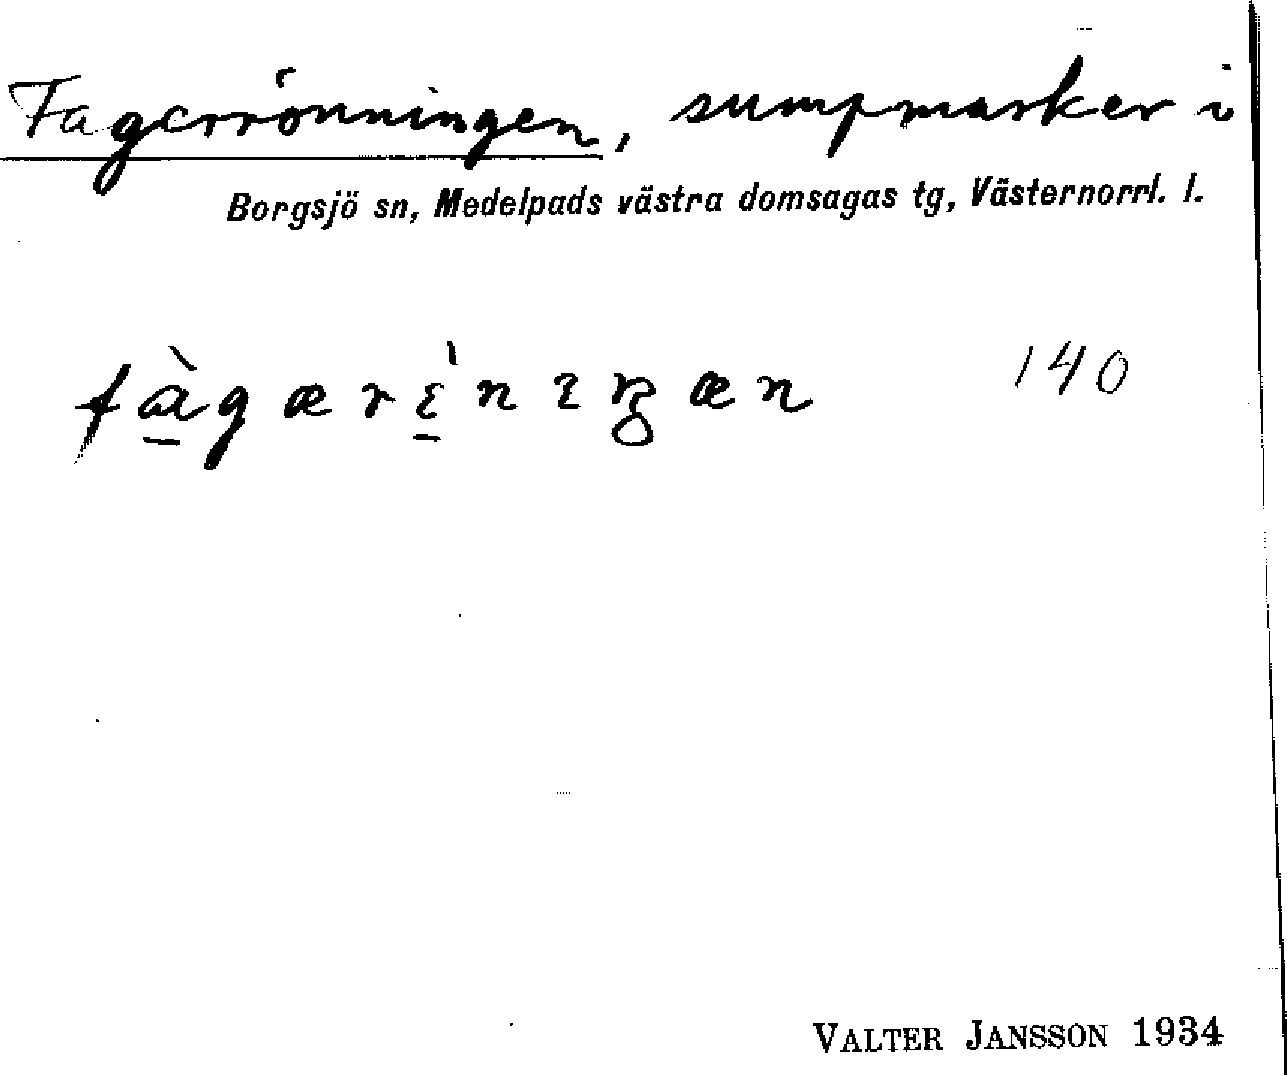 Fagerrönningen, sumpmarker i
Borgsjö sn, Medelpads västra domsagas tg, Västernorrl. l.
140
VALTER JANSSON 1934